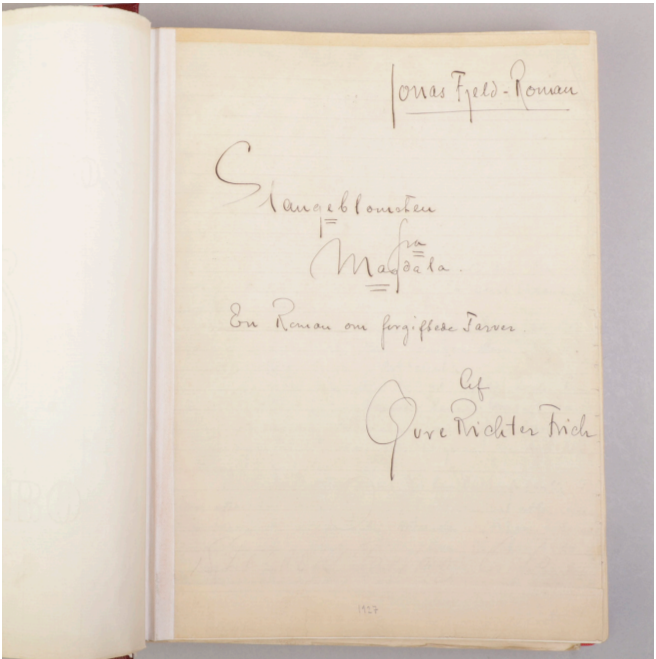 Jonas Fjeld-Roman
Slangeblomsten
fra
Magdala.
En Roman om forgiftede Farver.
Af
Øvre Richter Frich
1927